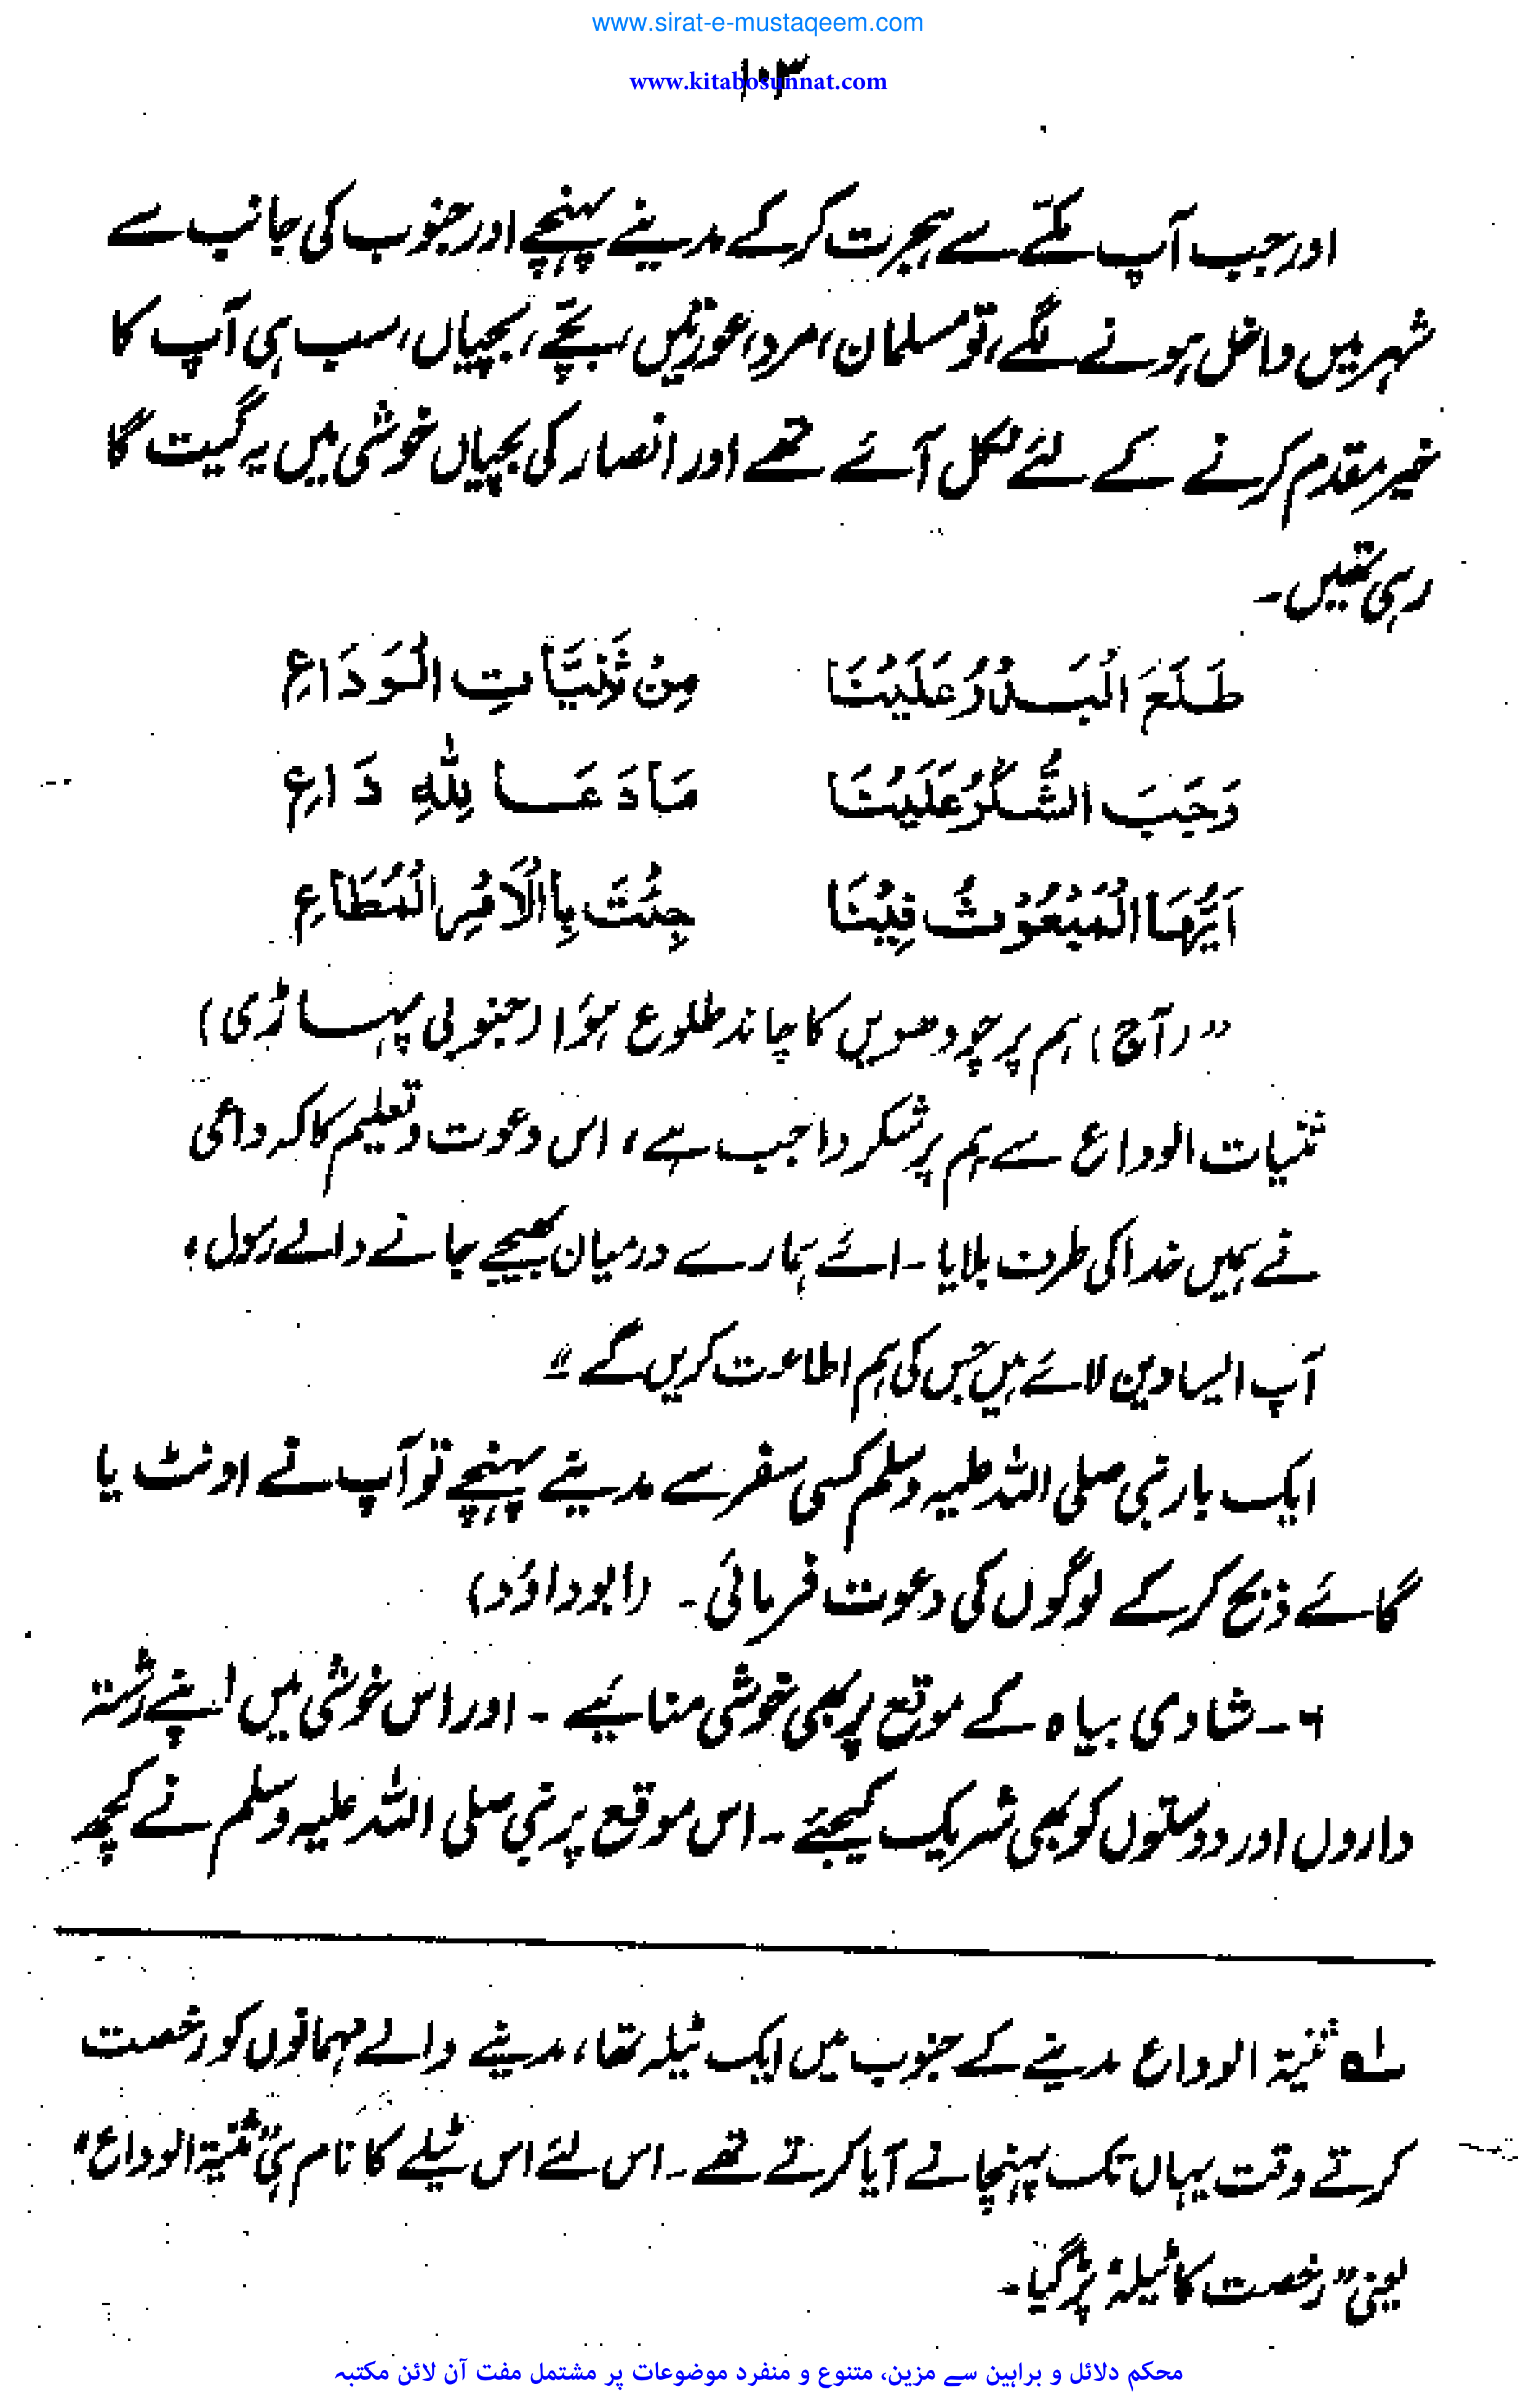 www.sirat-e-mustaqeem.com
۱۰۳
www.kitabosunnat.com
اور جب آپ مکّے سے ہجرت کرکے مدینے پہنچے اور جنوب کی جانب سے
شہر میں داخل ہونے لگے، تو مسلمان، مرد، عورتیں، بچّے، بچیاں، سب ہی آپ کا
خیر مقدم کرنے کے لئے نکل آئے تھے اور انصار کی بچیاں خوشی میں یہ گیت گا
رہی تھیں۔
طَلَعَ الْبَدْرُ عَلَيْنَا مِنْ ثَنِيَّاتِ الْوَدَاعِ
وَجَبَ الشُّكْرُ عَلَيْنَا مَا دَعَا لِلّٰهِ دَاعِ
اَيُّهَا الْمَبْعُوْثُ فِيْنَا جِئْتَ بِالْاَمْرِ الْمُطَاعِ
”(آج) ہم پر چودھویں کا چاند طلوع ہوَا (جنوبی پہاڑی)
ثنیات الوداع سے ہم پر شکر واجب ہے، اس دعوت وتعلیم کا کہ داعی
نے ہمیں خدا کی طرف بلایا۔ اے ہمارے درمیان بھیجے جانے والے رسول،
آپ ایسا دین لائے ہیں جس کی ہم اطاعت کریں گے“
ایک بار نبی صلی اللہ علیہ وسلم کسی سفر سے مدینے پہنچے تو آپ نے اونٹ یا
گائے ذبح کرکے لوگوں کی دعوت فرمائی۔ (ابوداؤد)
۶۔ شادی بیاہ کے موقع پر بھی خوشی منائیے۔ اور اس خوشی میں اپنے رشتہ
داروں اور دوستوں کو بھی شریک کیجئے۔ اس موقع پر نبی صلی اللہ علیہ وسلم نے کچھ
۱ ثنیۃ الوداع مدینے کے جنوب میں ایک ٹیلہ تھا، مدینے والے مہمانوں کو رخصت
کرتے وقت یہاں تک پہنچانے آیا کرتے تھے۔ اس لئے اس ٹیلے کا نام ہی ”ثنیۃ الوداع“
یعنی ”رخصت کا ٹیلہ“ پڑ گیا۔
محکم دلائل و براہین سے مزین، متنوع و منفرد موضوعات پر مشتمل مفت آن لائن مکتبہ